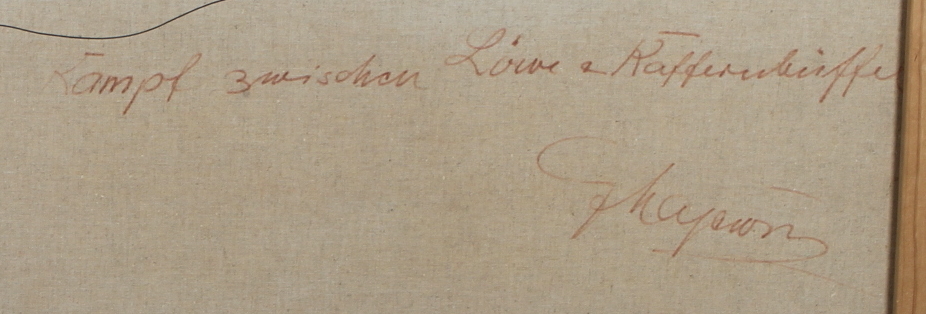 Kampf zwischen Löwe & Kaffernbüffel